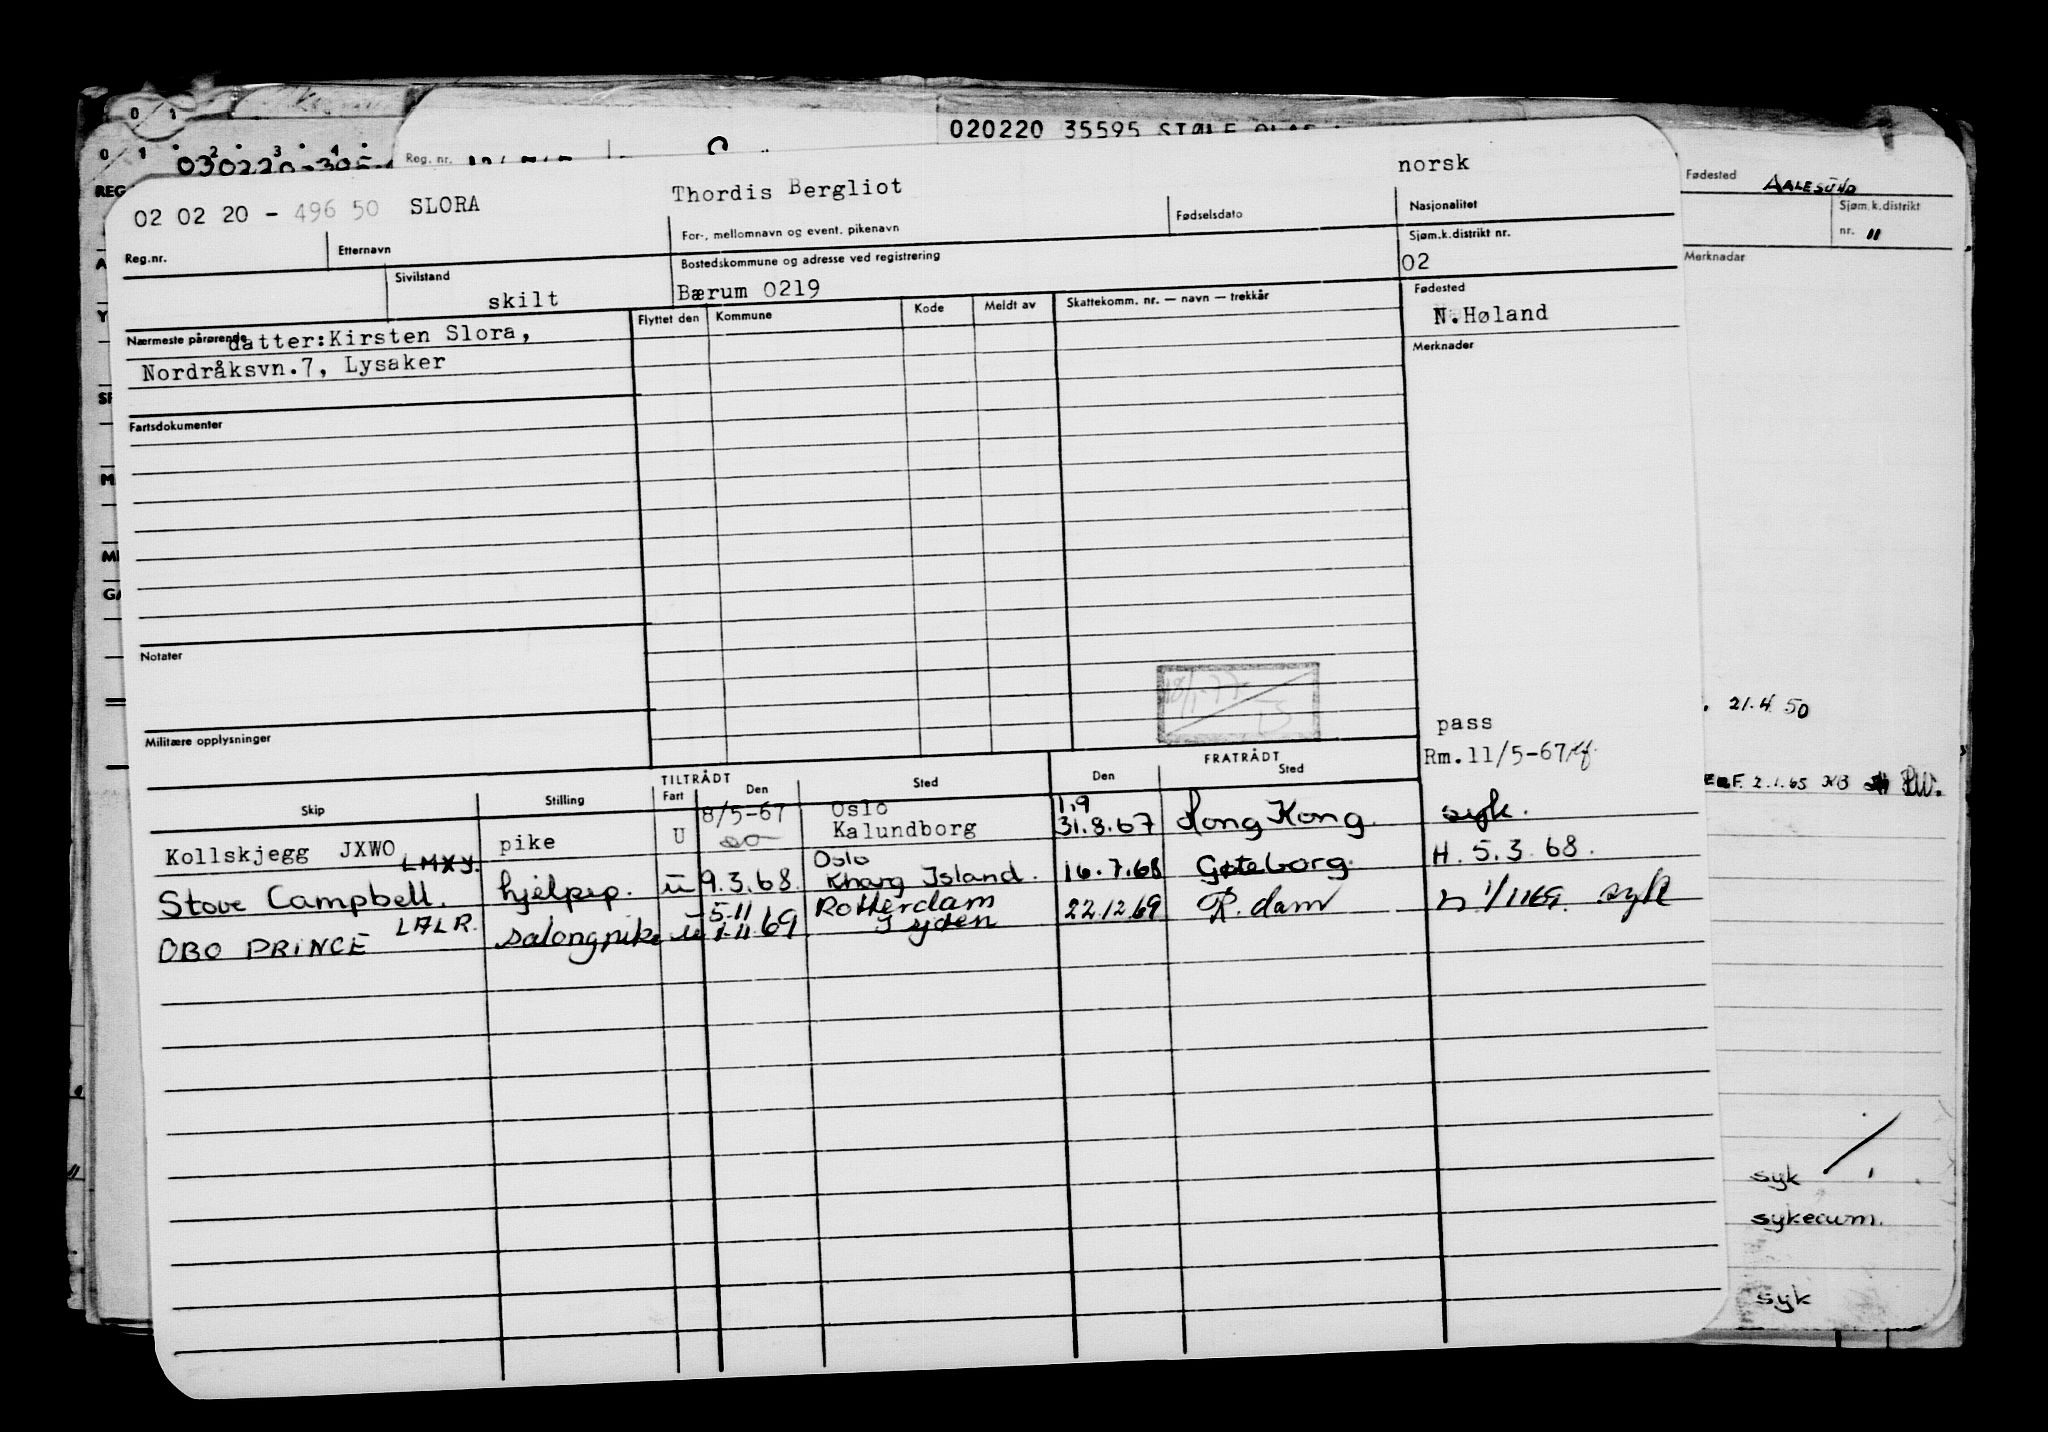 020220 35595
Reg. nr.
Fødested AALESUND
Sjøm.k.distrikt
nr. 11
Merknader
02 02 20 - 496 50 SLORA Thordis Bergliot norsk
Reg.nr. Etternavn For-, mellomnavn og event. pikenavn Fødselsdato Nasjonalitet
Sivilstand Bostedskommune og adresse ved registrering Sjøm.k.distrikt nr.
skilt Bærum 0219 02
Nærmeste pårørende Flyttet den Kommune Kode Meldt av Skattekomm. nr. — navn — trekkår Fødested
datter:Kirsten Slora, N.Høland
Nordråksvn.7, Lysaker Merknader
Fartsdokumenter
Notater
Militære opplysninger
pass
Rm.11/5-67
TILTRÅDT FRATRÅDT
Skip Stilling Fart Den Sted Den Sted
8/5-67 Oslo 1.9
Kollskjegg JXWO pike U Kalundborg 31.8.67 Hong Kong. syk.
LMXY. Oslo H. 5.3.68.
Stove Campbell. hjelpep. u 9.3.68. Kharg Island. 16.7.68 Gøteborg.
LALR. 5.11 Rotterdam
OBO PRINCE salongpike u 1.11.69 Ijyden 22.12.69 R.dam 1/1169. syk
21.4.50
2.1.65
syk
syk